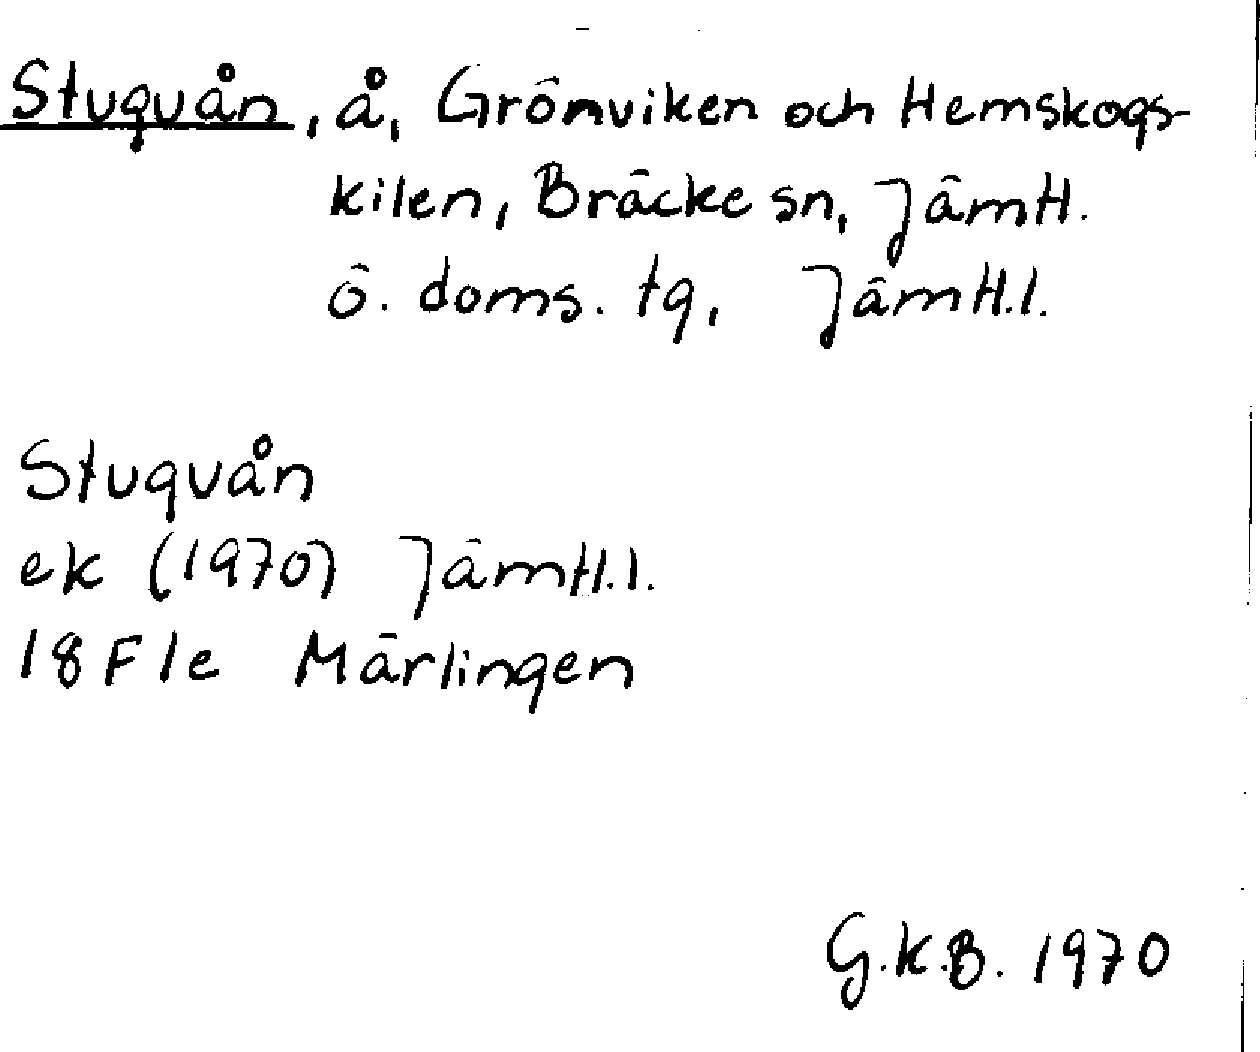 Stuguån, å, Grönviken och Hemskogs-
kilen, Bräcke sn, Jämtl.
ö. doms. tg, Jämtl.l.
Stuguån
ek (1970) Jämtl.l.
18F1e Märlingen
G.K.B. 1970